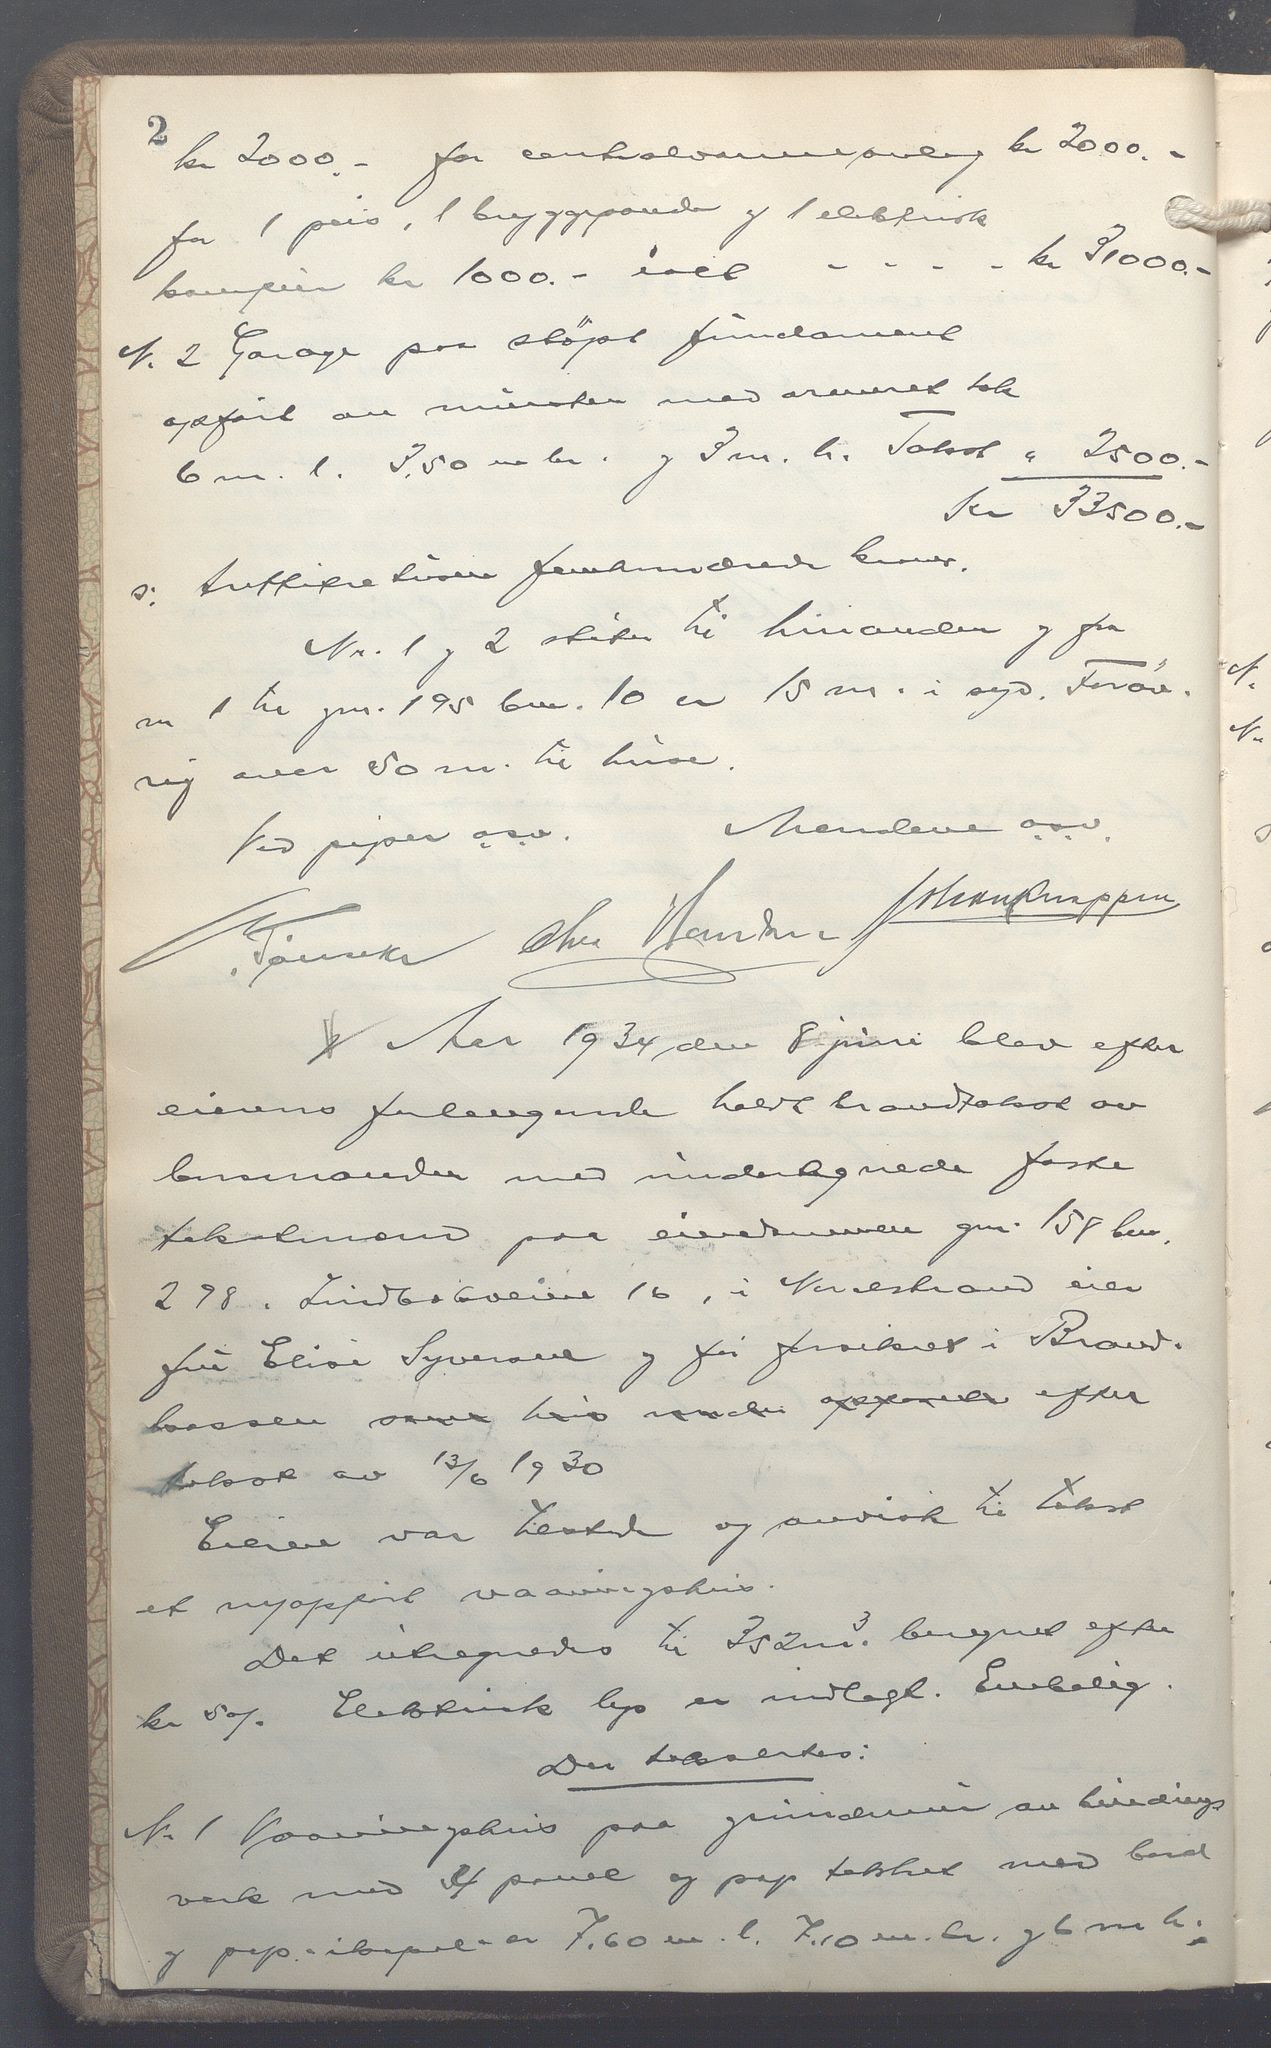 2
kr 2000.- for centralvarmeanleg kr 2000.-
for 1 peis, 1 bryggepande og 1 elektrisk
kamfür kr 1000.- ialt - - - - kr 31000.-
N. 2 Garage paa støpt fundament
opført av mursten med armeret tak
6 m. l. 3,50 m br. og 3 m. h. Takst " 2500.-
Kr 33500.-
s: trettitre tusen femhundrede kroner.
Nr. 1 og 2 støter til hinanden og fra
nr 1 til gnr. 195 bnr. 10 er 15 m. i syd. Forøv-
rig over 50 m. til huse.
Ved piper o.s.v. Mændene o.s.v.
Johan Knappen
Aar 1934, den 8 juni blev efter
eierens forlangende holdt brandtakst av
lensmanden med undertegnede faste
takstmænd paa eiendommen gnr. 158 bnr.
298. Lindbakveien 16, i Nordstrand eier
fru Elise Syversen og før forsikret i Brand-
kassen som hus under opførelse efter
takst av 13/6 1930
Eieren var tilstede og anviste til takst
et nyopført vaaningshus.
Det utregnedes til 352 m³. beregnet efter
kr 50/. Elektrisk lys er indlagt. Enebolig.
Der taxertes:
Nr 1 Vaaningshus paa grundmur av bindings
verk med panel og pap tækket med bord
og pap. er 7,60 m. l. 7,10 m. br. og 6 m h.